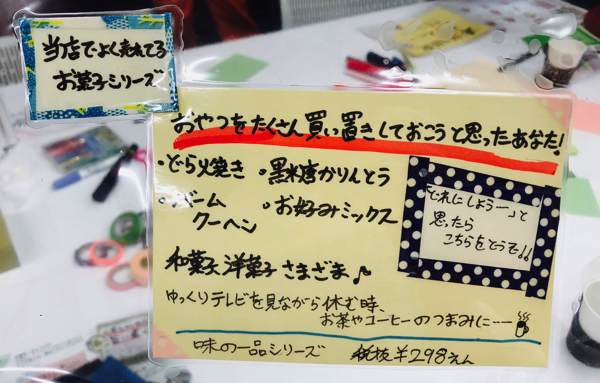 当店でよく売れてる
お菓子シリーズ
おやつをたくさん買い置きしておこうと思ったあなた!
・どら焼き ・黒糖かりんとう
・バーム
クーヘン ・お好みミックス
「どれにしようー」と
思ったら
こちらをどうぞ!!
和菓子、洋菓子さまざま♪
ゆっくりテレビを見ながら休む時、
お茶やコーヒーのつまみに……
味の一品シリーズ 税抜¥298えん